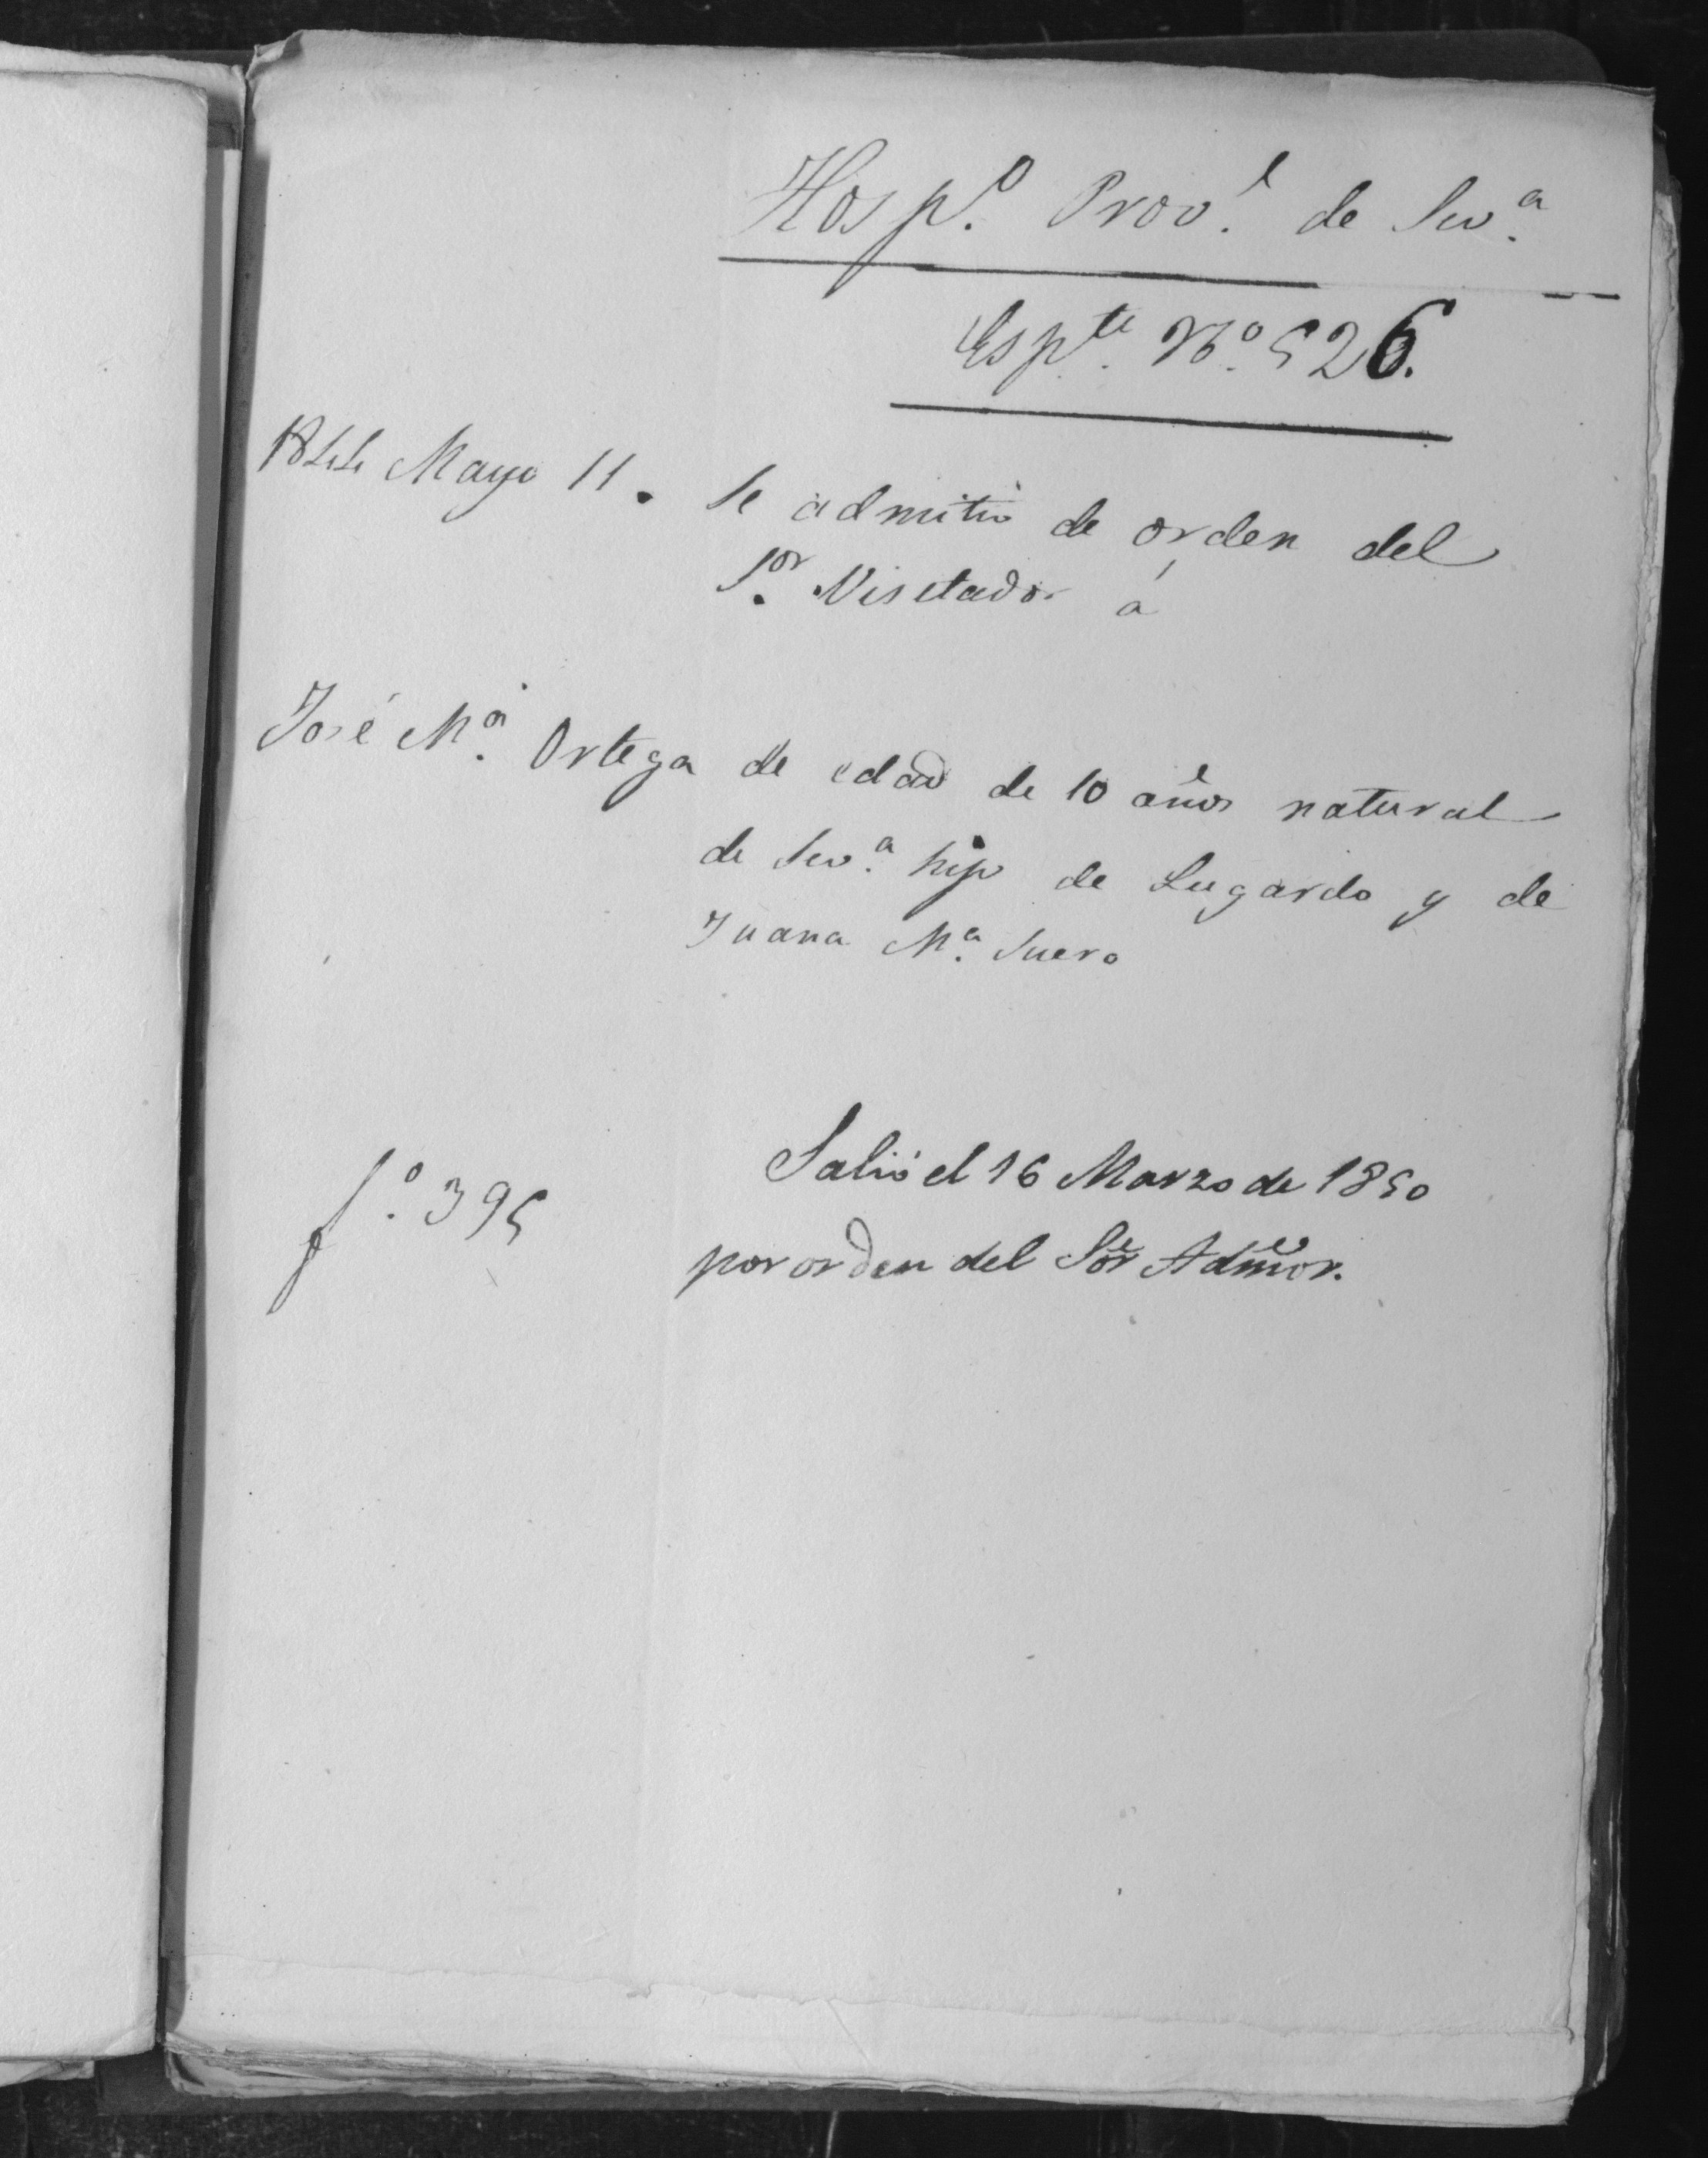 Hosp.º Prov.l de Sev.ª
Esp.te Nº. 526.
1844 Mayo 11. Se admitió de orden del
S.or Visitador á
José M.ª Ortega de edad de 10 años natural
de Sev.ª hijo de Lugardo y de
Juana M.ª Suero
fº. 395
Salió el 16 Marzo de 1850
por orden del Sor Admor.